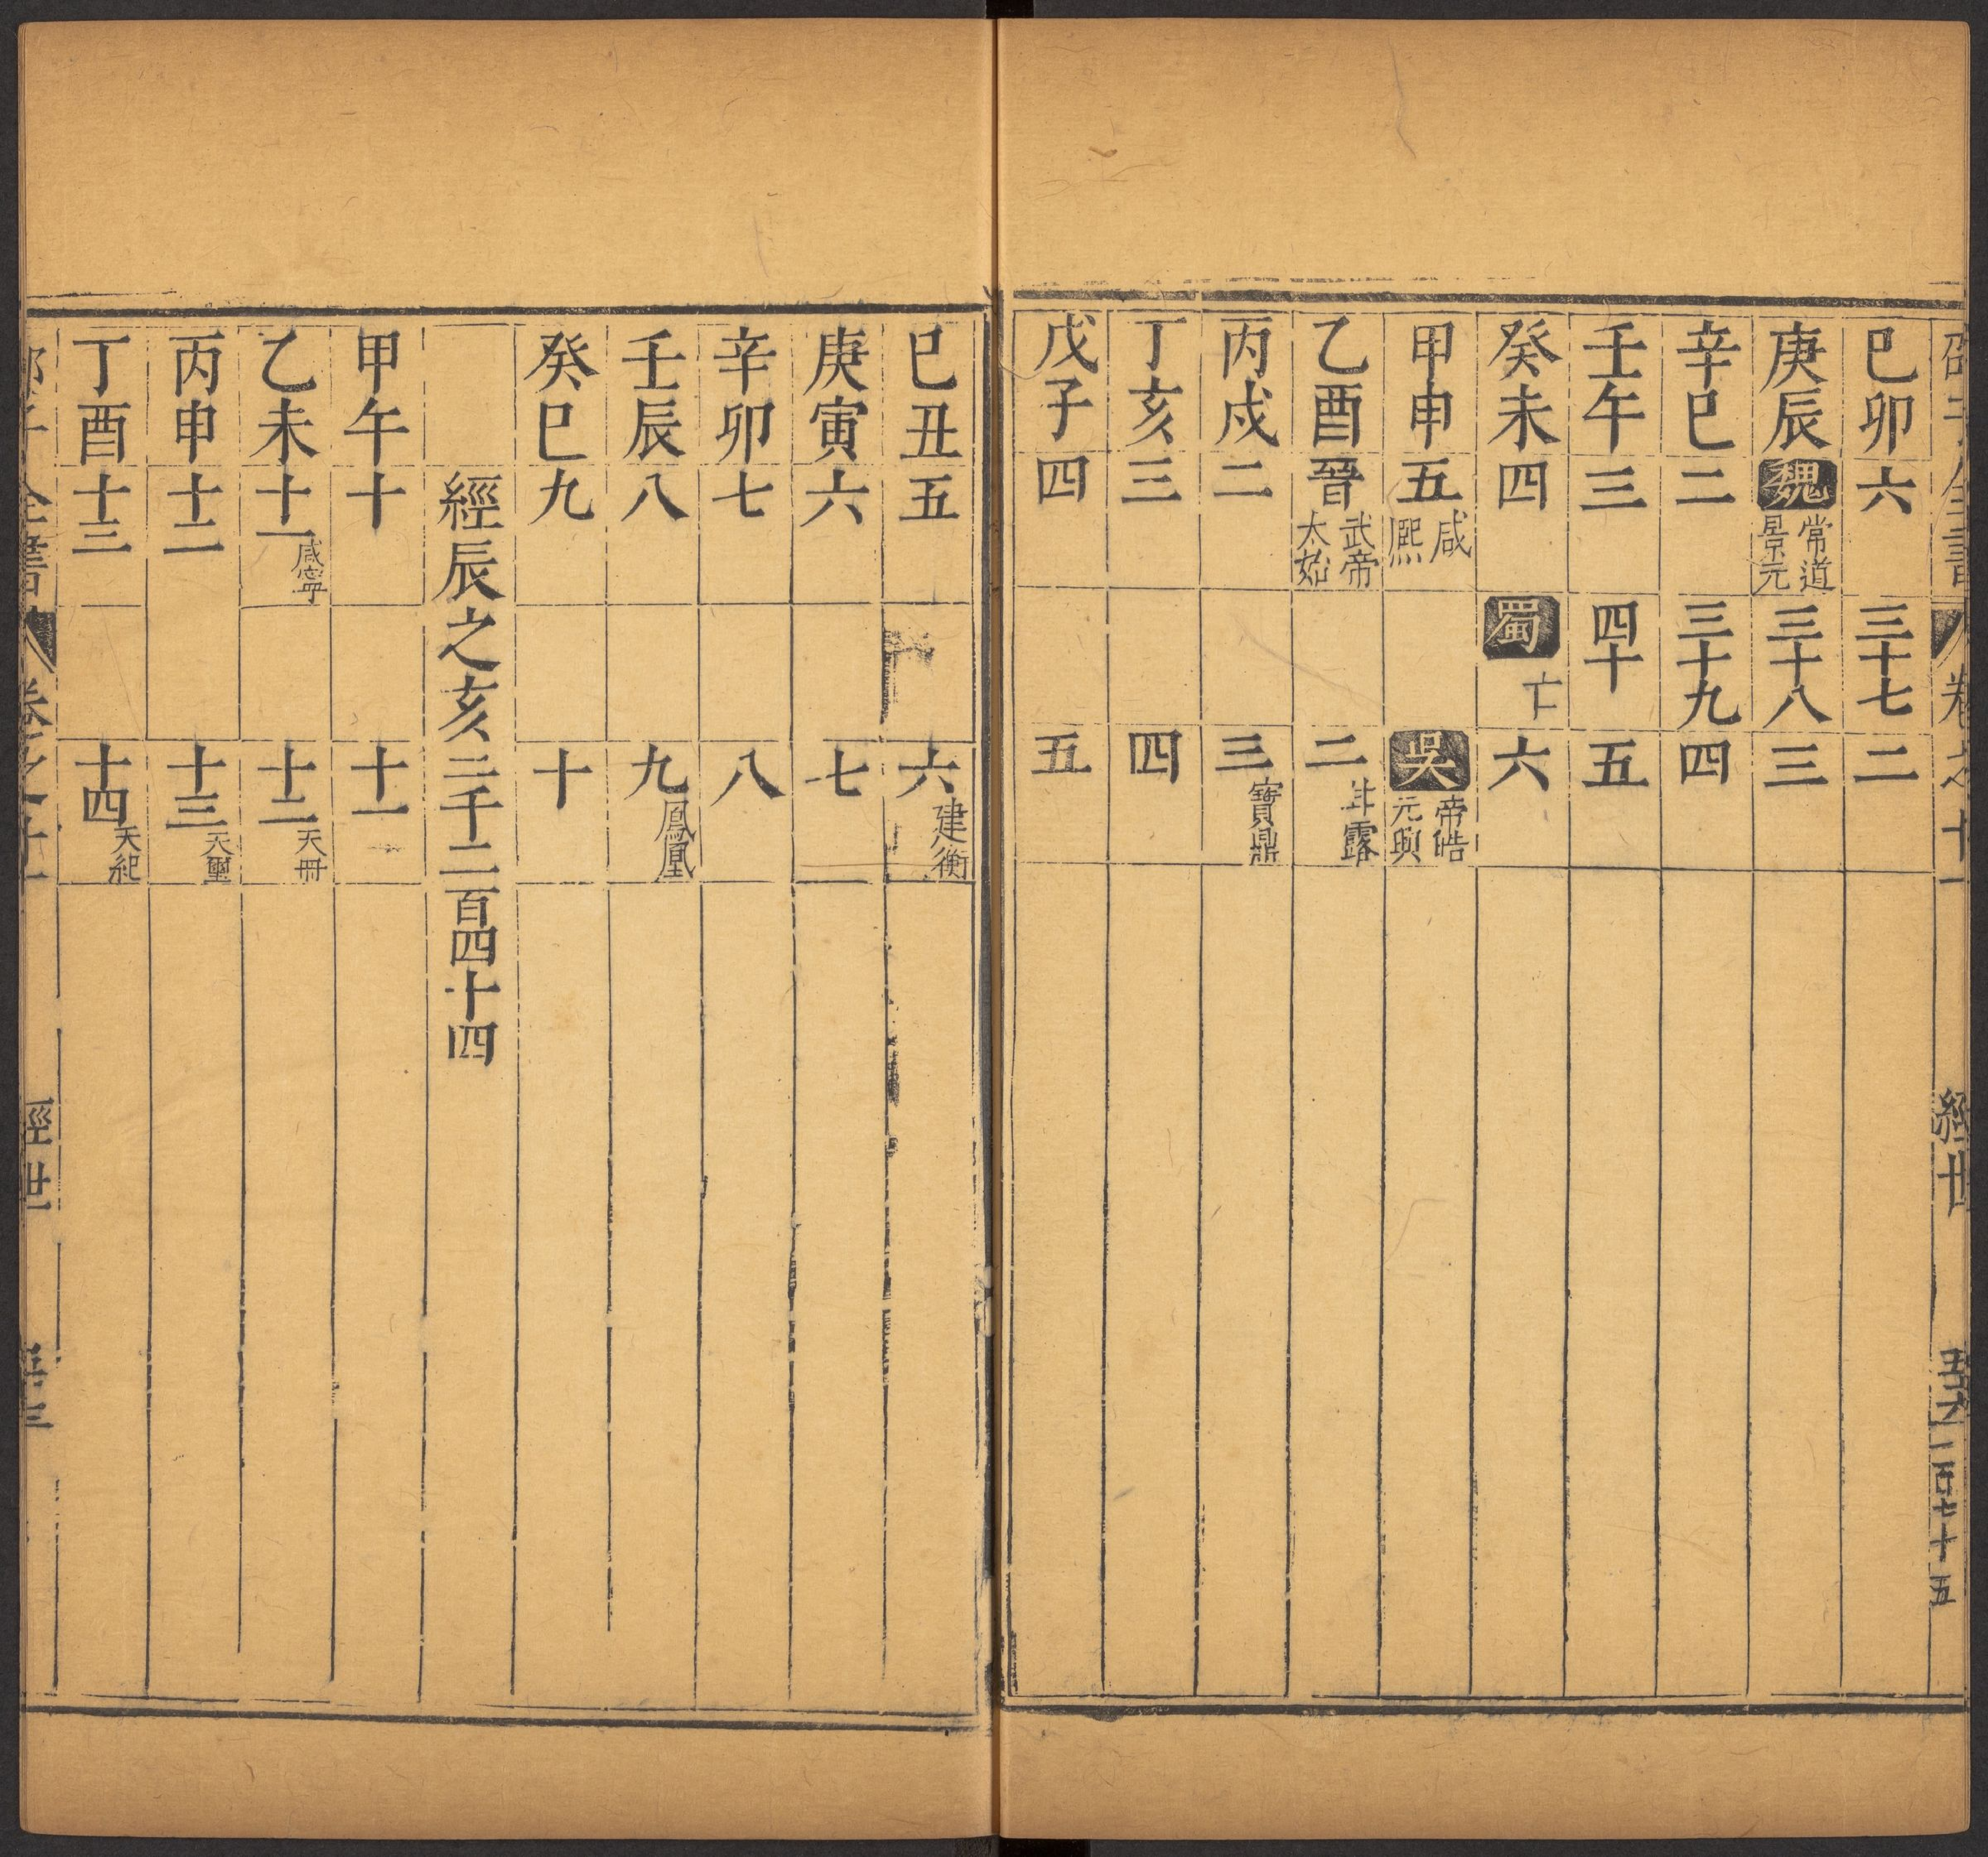 邵子全書 卷之十一 經世 二百七十五
己卯六 三十七 二
庚辰魏常道景元 三十八 三
辛巳二 三十九 四
壬午三 四十 五
癸未四 蜀亡 六
甲申五咸熙 吳帝皓元興
乙酉晉武帝太始 二甘露
丙戌二 三寶鼎
丁亥三 四
戊子四 五
己丑五 六建衡
庚寅六 七
辛卯七 八
壬辰八 九鳳凰
癸巳九 十
經辰之亥二千二百四十四
甲午十 十一
乙未十一咸寧 十二天冊
丙申十二 十三天璽
丁酉十三 十四天紀
子全書 卷之十一 經世